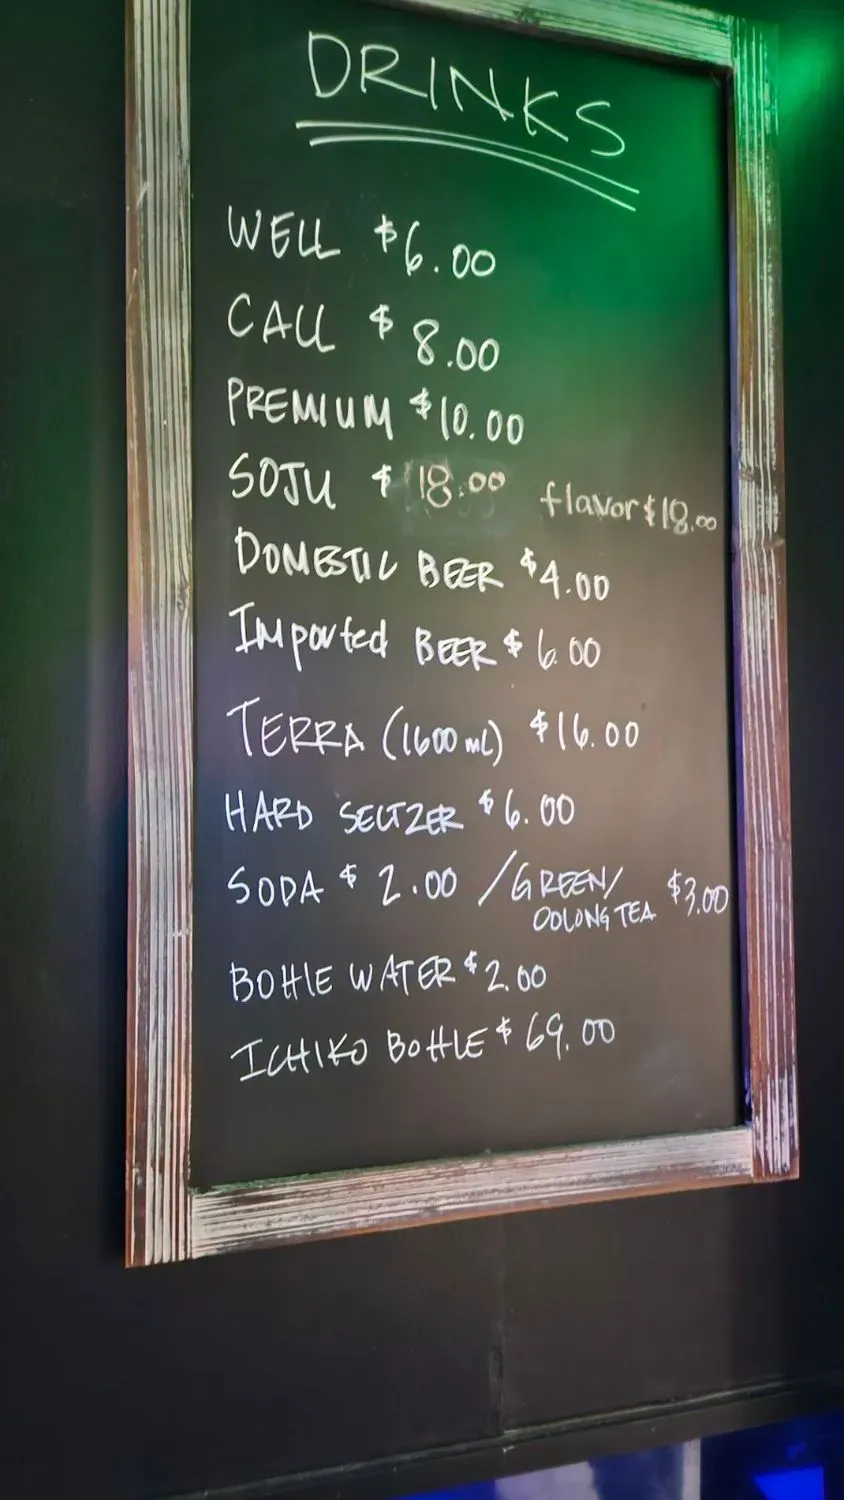 DRINKS
WELL $6.00
CALL $8.00
PREMIUM $10.00
SOJU $18.00 flavor $18.00
DOMESTIC BEER $4.00
Imported BEER $6.00
TERRA (1600 mL) $16.00
HARD SELTZER $6.00
SODA $2.00 /GREEN/ OOLONG TEA $3.00
BOttlE WATER $2.00
ICHIKO BOttLE $69.00